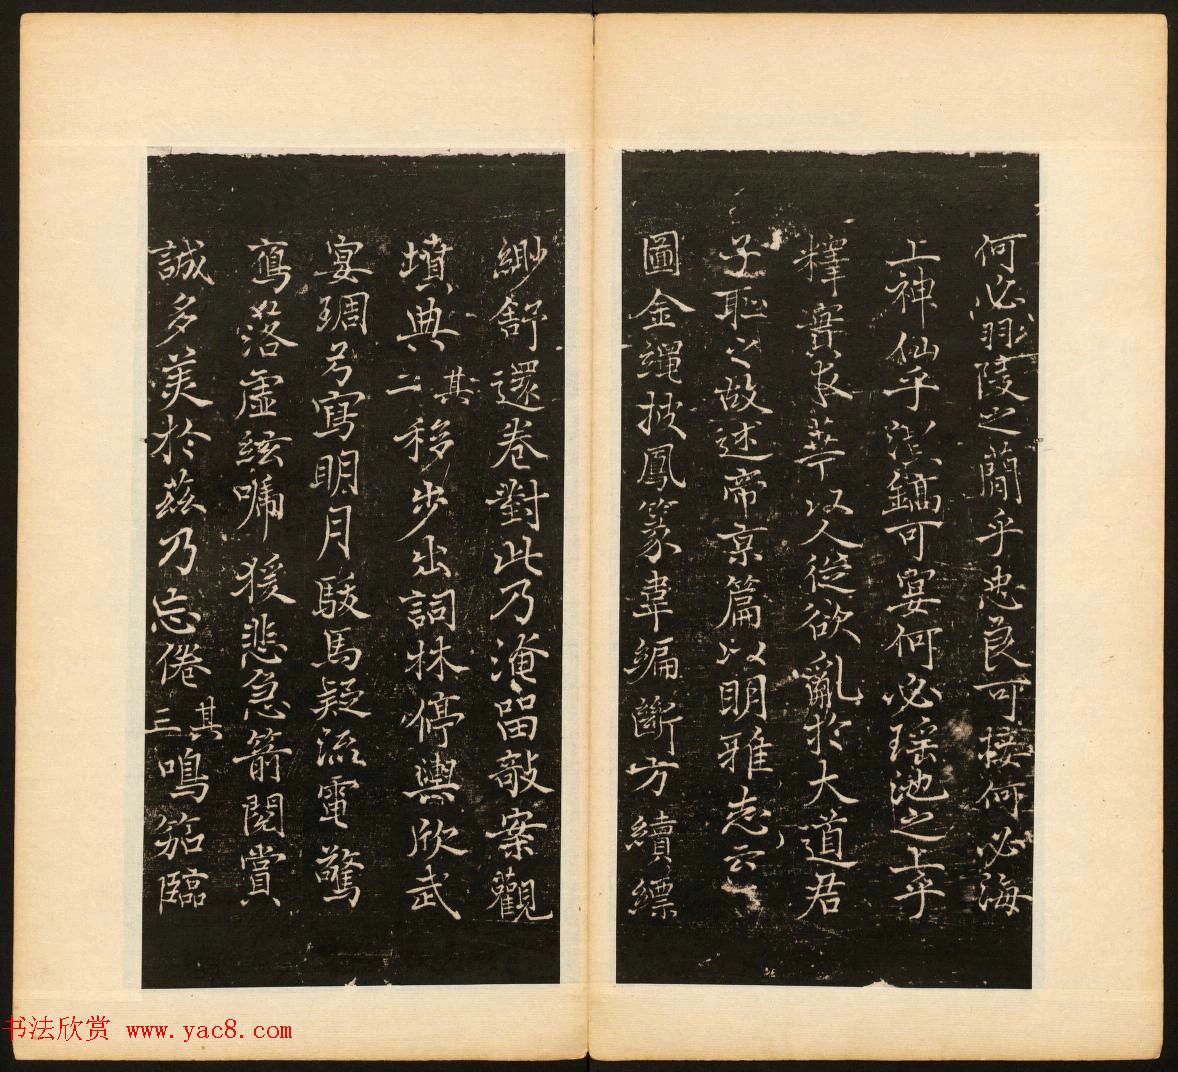 何必羽陵之簡乎忠良可接何必海
上神仙乎鎬可宴何必瑤池之上乎
釋實求華以人從欲亂於大道君
子恥之故述帝京篇以明雅志云
圖金繩披鳳篆韋編斷方續縹
舒還卷對此乃淹留敧案觀
墳典其二移步出詞林停輿欣武
宴琱弓寫明月駿馬疑流電驚
鴈落虛絃啼猨悲急箭閱賞
誠多美於茲乃忘倦其三鳴笳臨
书法欣赏 www.yac8.com